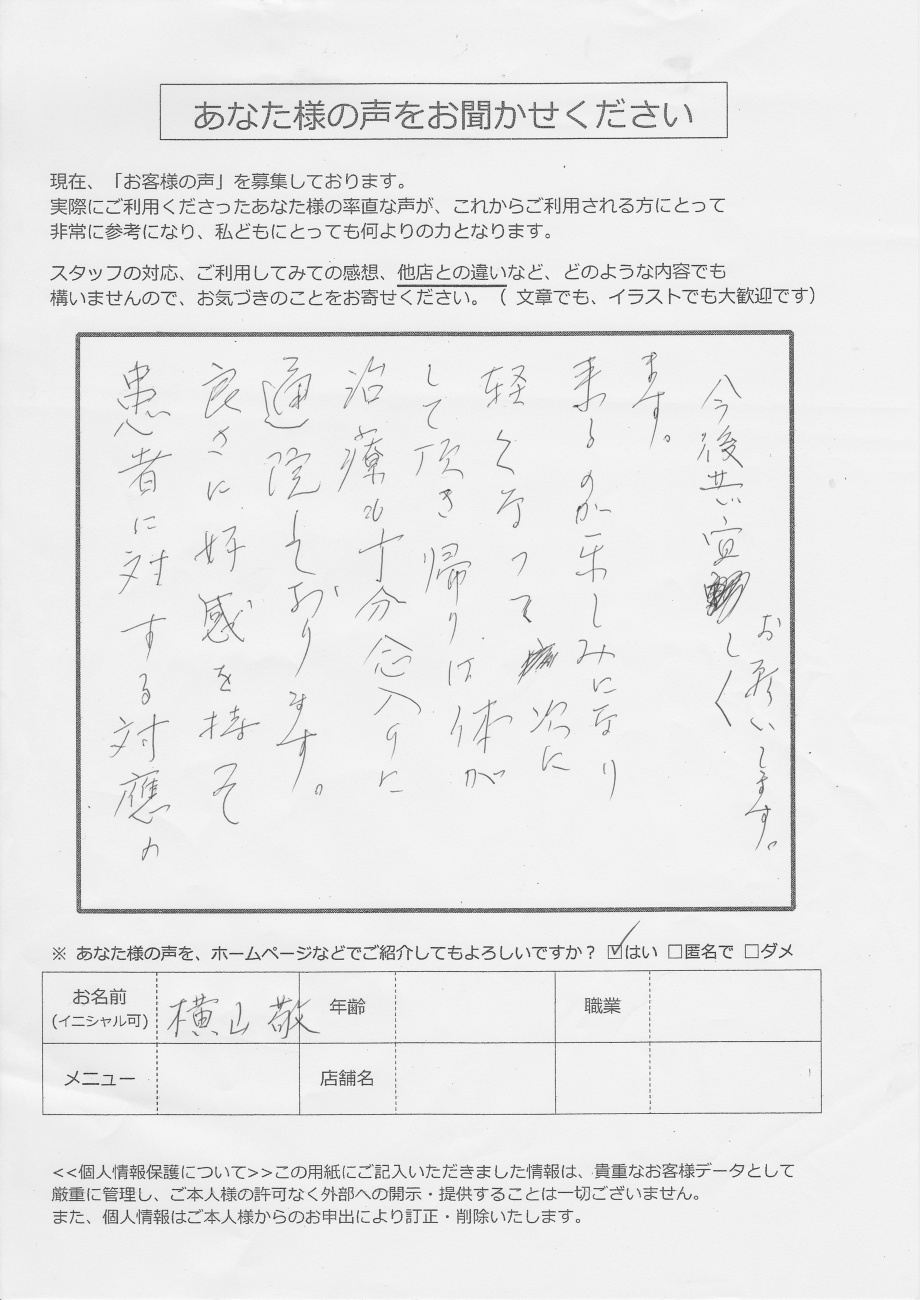 あなた様の声をお聞かせください
現在、「お客様の声」を募集しております。
実際にご利用くださったあなた様の率直な声が、これからご利用される方にとって
非常に参考になり、私どもにとっても何よりの力となります。
スタッフの対応、ご利用してみての感想、他店との違いなど、どのような内容でも
構いませんので、お気づきのことをお寄せください。（ 文章でも、イラストでも大歓迎です）
患者に対する対應の
良さに好感を持って
通院しております。
治療も十分念入りに
して頂き帰りは体が
軽くなって次に
来るのが楽しみになり
ます。
今後共宜しく
お願いします。
※ あなた様の声を、ホームページなどでご紹介してもよろしいですか？ ☑はい □匿名で □ダメ
お名前 横山敬 年齢 職業
(イニシャル可)
メニュー 店舗名
<<個人情報保護について>>この用紙にご記入いただきました情報は、貴重なお客様データとして
厳重に管理し、ご本人様の許可なく外部への開示・提供することは一切ございません。
また、個人情報はご本人様からのお申出により訂正・削除いたします。